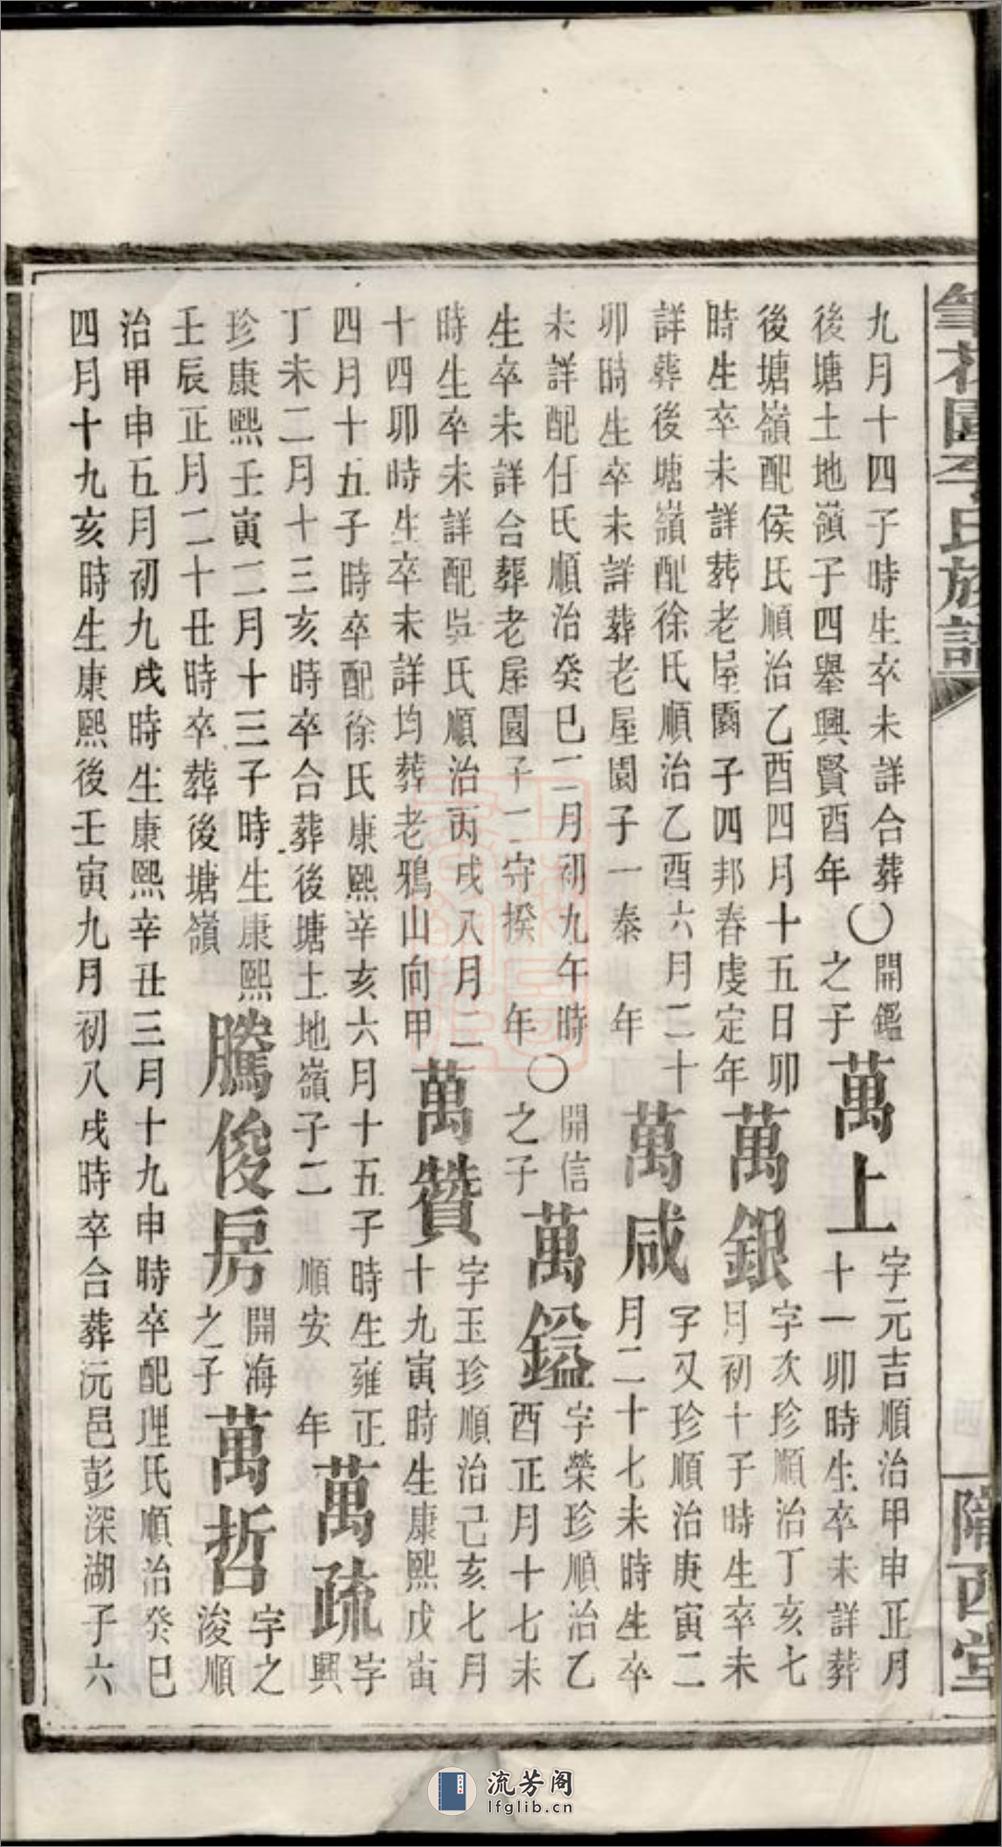 園李氏族譜
隴西堂
九月十四子時生卒未詳合葬〇開鑑
後塘土地嶺子四舉興賢酉年　之子
萬上
字元吉順治甲申正月
十一卯時生卒未詳葬
後塘嶺配侯氏順治乙酉四月十五日卯
時生卒未詳葬老屋園子四邦春虔定年
萬銀
字次珍順治丁亥七
月初十子時生卒未
詳葬後塘嶺配徐氏順治乙酉六月二十
卯時生卒未詳葬老屋園子一泰　年
萬咸
字又珍順治庚寅二
月二十七未時生卒
未詳配仔氏順治癸巳二月初九午時〇開信
生卒未詳合葬老屋園子一守揆　年　之子
萬鎰
字榮珍順治乙
酉正月十七未
時生卒未詳配吳氏順治丙戌八月二
十四卯時生卒未詳均葬老鴉山向甲
萬贊
字玉珍順治己亥七月
十九寅時生康熙戊寅
四月十五子時卒配徐氏康熙辛亥六月十五子時生雍正
丁未二月十三亥時卒合葬後塘土地嶺子二　順安　年
萬疏
字
興
珍康熙壬寅二月十三子時生康熙
壬辰正月二十丑時卒葬後塘嶺
騰俊房
開海
之子
萬哲
字之
浚順
治甲申五月初九戌時生康熙辛丑三月十九申時卒配理氏順治癸巳
四月十九亥時生康熙後壬寅九月初八戌時卒合葬沅邑彭深湖子六
流芳阁
lfglib.cn